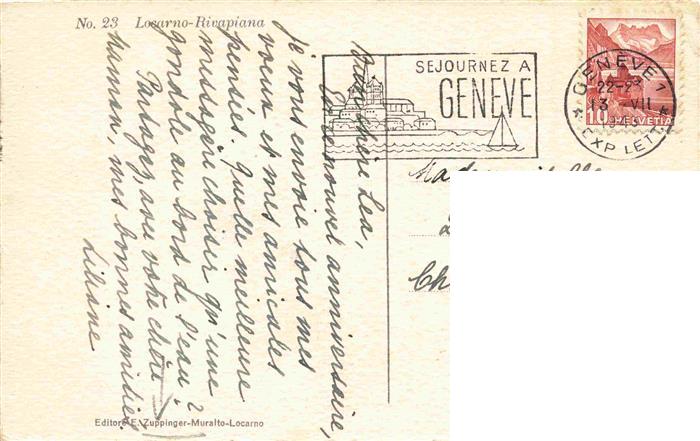 No. 23 Locarno-Rivapiana
Bien chère Lea,
En ce nouvel anniversaire,
je vous envoie tous mes
voeux et mes amicales
pensées. Quelle meilleure
messagère choisir qu'une
gondole au bord de l'eau?
Partagez avec votre chère
maman, mes bonnes amitiés
Liliane
Editore E. Zuppinger-Muralto-Locarno
SEJOURNEZ A
GENÈVE
GENÈVE 1
22-23
13 VII
EXP LETT
10 HELVETIA